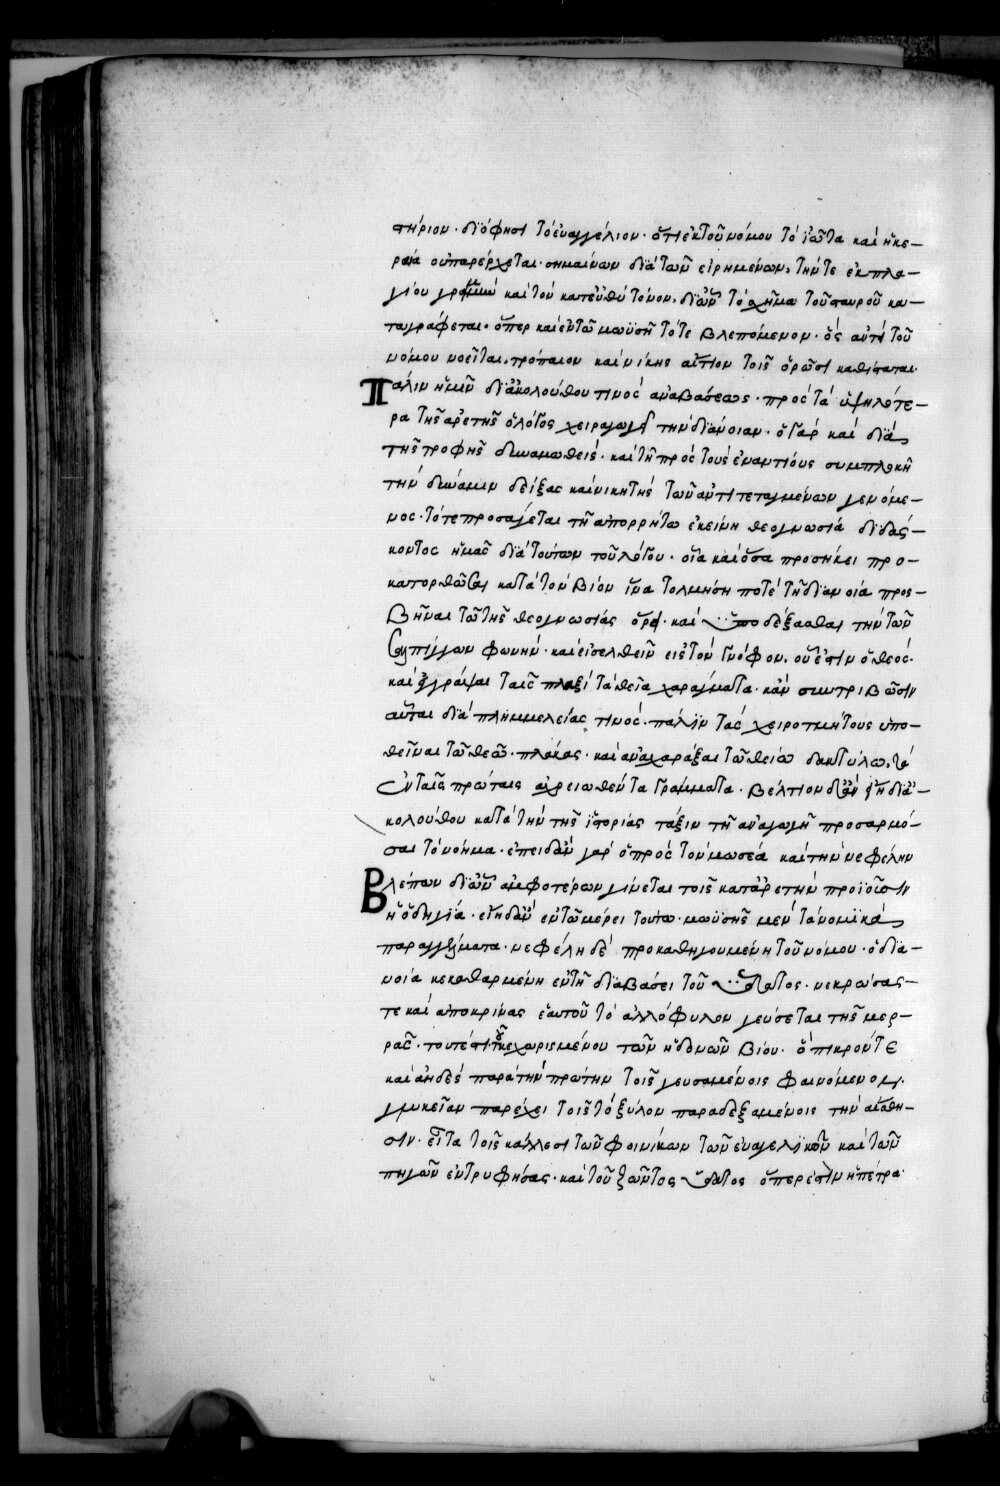 τήριον · δϊό φησι τὸ ἐυαγγέλιον · ὅτι ἐκ τοῦ νόμου τὸ ϊῶτα καὶ ἡ κε–
ραία ου παρέρχεται · σημαίνων διὰ τῶν εἰρημένων, τήν τε ἐκ πλα–
γίου γραμμὴν καὶ τὸν κατευθὺ τόνον, δι ὧν τὸ σχῆμα τοῦ σταυροῦ κα–
ταγράφεται · ὅπερ καὶ ἐν τῶ μωϋσῆ τότε βλεπόμενον · ὃς αντὶ τοῦ
νόμου νοεῖται, τρόπαιον καὶ νίκης αἴτιον τοῖς ὁρῶσι καθίσταται ·
Πάλιν ἡμῖν δϊ ἀκολούθου τινὸς αναβάσεως · πρὸς τὰ ὑψηλότε–
ρα τῆς αρετῆς ὁ λόγος χειραγωγεῖ τὴν διάνοιαν · ὁ γὰρ καὶ δϊὰ
τῆς τροφῆς δυναμωθεὶς · καὶ τῆ πρὸς τοὺς ἐναντίους συμπλοκῆ
τὴν δύναμιν δείξας καὶ νικητὴς τῶν αντιτεταγμένων γενόμε–
νος · τότε προσάγεται τῆ απορρήτω ἐκείνη θεογνωσία διδάσ–
κοντος ἡμᾶς δϊὰ τούτων τοῦ λόγου · οἷα καὶ ὅσα προσήκει προ–
κατορθῶσαι κατὰ τὸν βίον ἵνα τολμήση ποτὲ τῆ δϊανοία προς–
βῆναι τῶ τῆς θεογνωσίας ὄρει · καὶ ὑποδέξασθαι τὴν τῶν
σαλπίγγων φωνήν · καὶ εισελθεῖν εις τὸν γνόφον, οὗ ἐστιν ὁ θεός ·
καὶ ἐγγράψαι ταῖς πλαξὶ τὰ θεῖα χαράγματα · κἂν συντριβῶσιν
αὗται δϊὰ πλημμελείας τινός · πάλϊν τὰς χειροτμήτους ὑπο–
θεῖναι τῶ θεῶ · πλάκας · καὶ αναχαράξαι τῶ θείω δακτύλω, τὰ
ἐν ταῖς πρώταις αχρειωθέντα γράμματα · βέλτιον δ ἂν εἴη δϊ ἀ–
κολούθου κατὰ τὴν τῆς ἱστορίας τάξιν τῆ αναγωγῆ προσαρμό–
σαι τὸ νόημα · ἐπειδὰν γὰρ ὁ πρὸς τὸν μωσέα καὶ τὴν νεφέλην
Βλέπων δϊ ὧν αμφοτέρων γίνεται τοῖς κατ ἀρετὴν προϊοῦσιν
ἡ ὁδηγϊα · εἴη δ ἂν ἐν τῶ μέρει τούτω · μωϋσῆς μὲν τὰ νομϊκὰ
παραγγέλματα · νεφέλη δὲ προκαθηγουμένη τοῦ νόμου · ὁ δϊα–
νοία κεκαθαρμένη ἐν τῆ δϊαβάσει τοῦ ὕδατος · νεκρώσας–
τε καὶ αποκρίνας ἑαυτοῦ τὸ αλλόφυλον γεύσεται τῆς μερ–
ρᾶς · τουτέστι τοῦ κεχωρισμένου τῶν ἡδονῶν βίου · ὃ πικρόν τε
καὶ αηδὲς παρὰ τὴν πρώτην τοῖς γευσαμένοις φαινόμενον,
γλυκεῖαν παρέχει τοῖς τὸ ξύλον παραδεξαμένοις τὴν αἴσθη–
σιν · εἶτα τοῖς κάλλεσι τῶν φοινίκων τῶν ἐυαγγελϊκῶν καὶ τῶν
πηγῶν ἐντρυφήσας · καὶ τοῦ ζῶντος ὕδατος ὅπερ ἐστὶν ἡ πέτρα ·